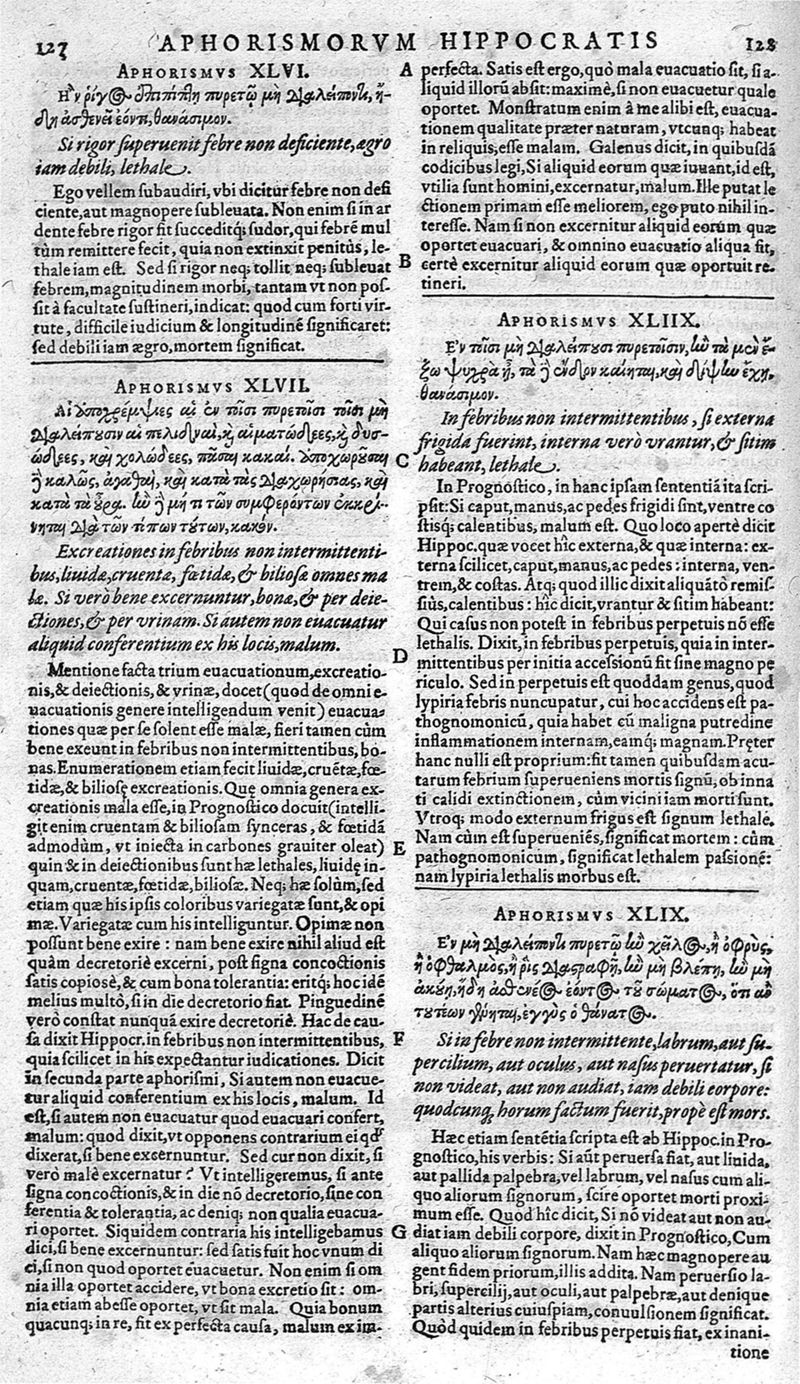 127 APHORISMORVM HIPPOCRATIS 128
APHORISMVS XLVI.
Ην ρίγος ἐπιπίπτη πυρετῷ μὴ διαλείποντι, ἤ-
δη ἀσθενεῖ ἐόντι, θανάσιμον.
Si rigor superuenit febre non deficiente, ægro
iam debili, lethale.
Ego vellem subaudiri, vbi dicitur febre non defi
ciente, aut magnopere subleuata. Non enim si in ar
dente febre rigor fit succeditq; sudor, qui febrē mul
tùm remittere fecit, quia non extinxit penitùs, le-
thale iam est. Sed si rigor neq; tollit neq; subleuat
febrem, magnitudinem morbi, tantam vt non pos-
sit à facultate sustineri, indicat: quod cum forti vir-
tute, difficile iudicium & longitudinē significaret:
sed debili iam ægro, mortem significat.
APHORISMVS XLVII.
Αἱ ὑποχρέμψιες αἱ ἐν τοῖσι πυρετοῖσι τοῖσι μὴ
διαλείπουσιν αἱ πελιδναὶ, καὶ αἱματώδεες, καὶ δυσ-
ώδεες, καὶ χολώδεες, πᾶσαι κακαί. ὑποχωροῦσαι
δὲ καλῶς, ἀγαθαὶ, καὶ κατὰ τὰς διαχωρήσιας, καὶ
κατὰ τὰ οὖρα. ἢν δὲ μή τι τῶν συμφερόντων ἐκκρί-
νηται διὰ τῶν τόπων τούτων, κακόν.
Excreationes in febribus non intermittenti-
bus, liuidæ, cruentæ, fœtidæ, & biliosæ omnes ma
læ. Si verò bene excernuntur, bonæ, & per deie-
ctiones, & per vrinam. Si autem non euacuatur
aliquid conferentium ex his locis, malum.
Mentione facta trium euacuationum, excreatio-
nis, & deiectionis, & vrinæ, docet (quod de omni e-
uacuationis genere intelligendum venit) euacua-
tiones quæ per se solent esse malæ, fieri tamen cùm
bene exeunt in febribus non intermittentibus, bo-
nas. Enumerationem etiam fecit liuidæ, cruētæ, fœ-
tidæ, & biliosę excreationis. Quę omnia genera ex-
creationis mala esse, in Prognostico docuit (intelli-
git enim cruentam & biliosam synceras, & fœtidā
admodùm, vt iniecta in carbones grauiter oleat)
quin & in deiectionibus sunt hæ lethales, liuidę in-
quam, cruentæ, fœtidæ, biliosæ. Neq; hæ solùm, sed
etiam quæ his ipsis coloribus variegatæ sunt, & opi
mæ. Variegatæ cum his intelliguntur. Opimæ non
possunt bene exire : nam bene exire nihil aliud est
quàm decretoriè excerni, post signa concoctionis
satis copiosè, & cum bona tolerantia: eritq; hoc idē
melius multò, si in die decretorio fiat. Pinguedinē
verò constat nunquā exire decretoriè. Hac de cau-
sa dixit Hippocr. in febribus non intermittentibus,
quia scilicet in his expectantur iudicationes. Dicit
in secunda parte aphorismi, Si autem non euacue-
tur aliquid conferentium ex his locis, malum. Id
est, si autem non euacuatur quod euacuari confert,
malum: quod dixit, vt opponens contrarium ei qđ
dixerat, si bene excernuntur. Sed cur non dixit, si
verò malè excernatur? Vt intelligeremus, si ante
signa concoctionis, & in die nō decretorio, sine con
ferentia & tolerantia, ac deniq; non qualia euacua-
ri oportet. Siquidem contraria his intelligebamus
dici, si bene excernuntur: sed satis fuit hoc vnum di
ci, si non quod oportet euacuetur. Non enim si om
nia illa oportet accidere, vt bona excretio sit : om-
nia etiam abesse oportet, vt sit mala. Quia bonum
quacunq; in re, fit ex perfecta causa, malum ex im-
A perfecta. Satis est ergo, quò mala euacuatio sit, si a-
liquid illorū absit: maximè, si non euacuetur quale
oportet. Monstratum enim à me alibi est, euacua-
tionem qualitate præter naturam, vtcunq; habeat
in reliquis, esse malam. Galenus dicit, in quibusdā
codicibus legi, Si aliquid eorum quæ iuuant, id est,
vtilia sunt homini, excernatur, malum. Ille putat le
ctionem primam esse meliorem, ego puto nihil in-
teresse. Nam si non excernitur aliquid eorum quæ
oportet euacuari, & omnino euacuatio aliqua fit,
B certè excernitur aliquid eorum quæ oportuit re-
tineri.
APHORISMVS XLIIX.
Εν τοῖσι μὴ διαλείπουσι πυρετοῖσιν, ἢν τὰ μὲν ἔ-
ξω ψυχρὰ ᾖ, τὰ δὲ ἔνδον καίηται, καὶ δίψαν ἔχη,
θανάσιμον.
In febribus non intermittentibus, si externa
frigida fuerint, interna verò vrantur, & sitim
C habeant, lethale.
In Prognostico, in hanc ipsam sententiā ita scri-
psit: Si caput, manus, ac pedes frigidi sint, ventre co
stisq; calentibus, malum est. Quo loco apertè dicit
Hippoc. quæ vocet hîc externa, & quæ interna: ex-
terna scilicet, caput, manus, ac pedes : interna, ven-
trem, & costas. Atq; quod illic dixit aliquātò remis-
siùs, calentibus : hîc dicit, vrantur & sitim habeant:
Qui casus non potest in febribus perpetuis nō esse
lethalis. Dixit, in febribus perpetuis, quia in inter-
D mittentibus per initia accessionū fit sine magno pe
riculo. Sed in perpetuis est quoddam genus, quod
lypiria febris nuncupatur, cui hoc accidens est pa-
thognomonicū, quia habet cū maligna putredine
inflammationem internam, eamq; magnam. Pręter
hanc nulli est proprium: fit tamen quibusdam acu-
tarum febrium superueniens mortis signū, ob inna
ti calidi extinctionem, cùm vicini iam morti sunt.
Vtroq; modo externum frigus est signum lethale.
Nam cùm est superueniēs, significat mortem : cùm
E pathognomonicum, significat lethalem passionē:
nam lypiria lethalis morbus est.
APHORISMVS XLIX.
Εν μὴ διαλείποντι πυρετῷ ἢν χεῖλος, ἢ ὀφρὺς,
ἢ ὀφθαλμὸς, ἢ ῥὶς διαστραφῇ, ἢν μὴ βλέπη, ἢν μὴ
ἀκούη, ἤδη ἀσθενέος ἐόντος τοῦ σώματος, ὅτι ἂν
τουτέων γένηται, ἐγγὺς ὁ θάνατος.
F Si in febre non intermittente, labrum, aut su-
percilium, aut oculus, aut nasus peruertatur, si
non videat, aut non audiat, iam debili corpore:
quodcunq; horum factum fuerit, propè est mors.
Hæc etiam sentētia scripta est ab Hippoc. in Pro-
gnostico, his verbis: Si aūt peruersa fiat, aut liuida,
aut pallida palpebra, vel labrum, vel nasus cum ali-
quo aliorum signorum, scire oportet morti proxi-
mum esse. Quod hîc dicit, Si nō videat aut non au-
G diat iam debili corpore, dixit in Prognostico, Cum
aliquo aliorum signorum. Nam hæc magnopere au
gent fidem priorum, illis addita. Nam peruersio la-
bri, supercilij, aut oculi, aut palpebræ, aut denique
partis alterius cuiuspiam, conuulsionem significat.
Quòd quidem in febribus perpetuis fiat, ex inani-
tione